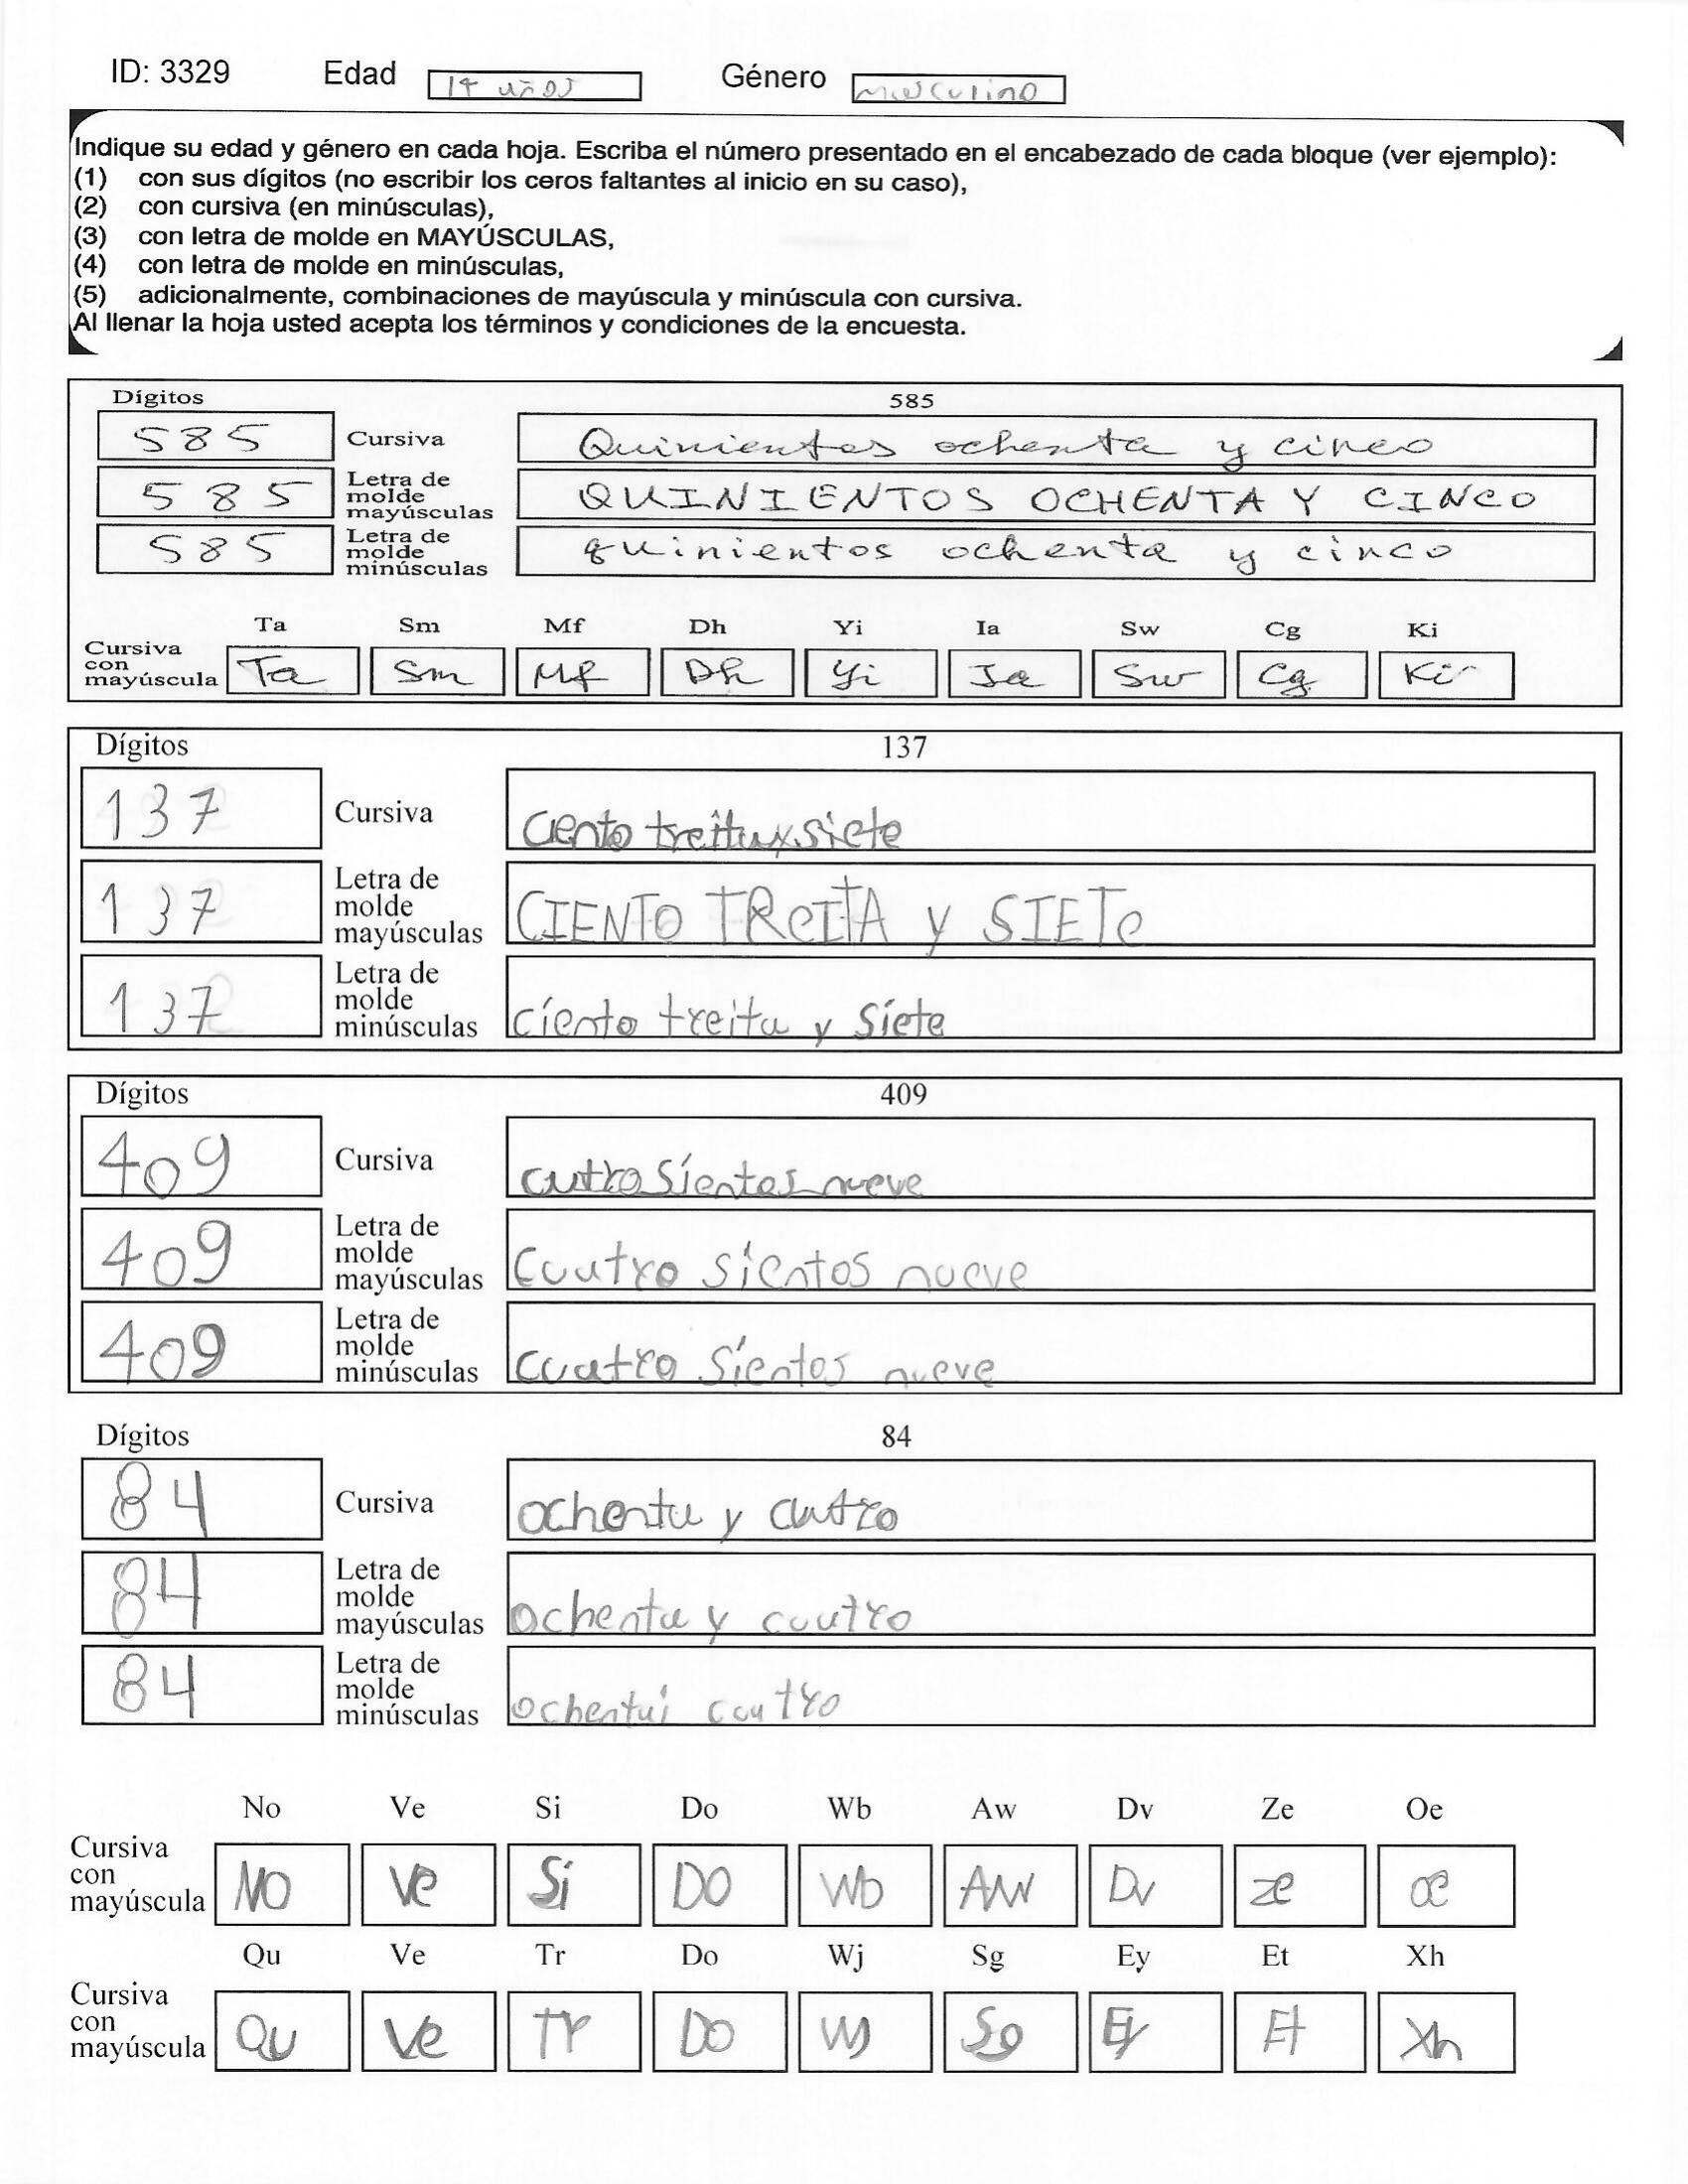 ID: 3329 Edad 14 años Género masculino
Indique su edad y género en cada hoja. Escriba el número presentado en el encabezado de cada bloque (ver ejemplo):
(1) con sus dígitos (no escribir los ceros faltantes al inicio en su caso),
(2) con cursiva (en minúsculas),
(3) con letra de molde en MAYÚSCULAS,
(4) con letra de molde en minúsculas,
(5) adicionalmente, combinaciones de mayúscula y minúscula con cursiva.
Al llenar la hoja usted acepta los términos y condiciones de la encuesta.
Dígitos 585
585 Cursiva Quinientos ochenta y cinco
585 Letra de molde mayúsculas QUINIENTOS OCHENTA Y CINCO
585 Letra de molde minúsculas quinientos ochenta y cinco
Ta Sm Mf Dh Yi Ia Sw Cg Ki
Cursiva con mayúscula Ta Sm Mf Dh Yi Ia Sw Cg Ki
Dígitos 137
137 Cursiva ciento treita y siete
137 Letra de molde mayúsculas CIENTO TReITA y SIETe
137 Letra de molde minúsculas ciento treita y siete
Dígitos 409
409 Cursiva cutro sientos nueve
409 Letra de molde mayúsculas Cuatro sientos nueve
409 Letra de molde minúsculas cuatro sientos nueve
Dígitos 84
84 Cursiva ochenta y cuatro
84 Letra de molde mayúsculas ochenta y cuatro
84 Letra de molde minúsculas ochentai cuatro
No Ve Si Do Wb Aw Dv Ze Oe
Cursiva con mayúscula NO Ve Si DO Wb AW Dv ze oe
Qu Ve Tr Do Wj Sg Ey Et Xh
Cursiva con mayúscula Qu Ve Tr DO Wj Sg Ey Et Xh